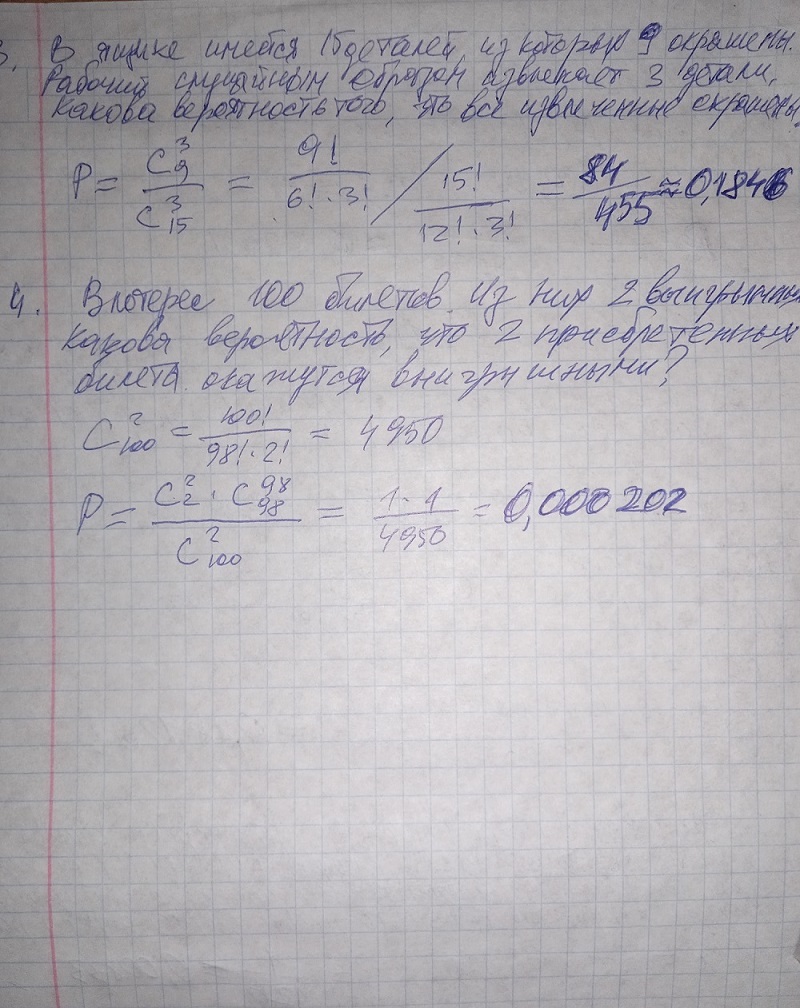 3. В ящике имеется 15 деталей, из которых 9 окрашены.
Рабочий случайным образом извлекает 3 детали.
Какова вероятность того, что все извлеченные окрашены.
P = C₉³ / C₁₅³ = 9! / (6! · 3!) / 15! / (12! · 3!) = 84/455 ≈ 0,1846
4. В лотерее 100 билетов. Из них 2 выигрышных
Какова вероятность, что 2 приобретенных
билета окажутся выигрышными?
C₁₀₀² = 100! / (98! · 2!) = 4950
P = C₂² · C₉₈⁹⁸ / C₁₀₀² = 1 · 1 / 4950 = 0,000202